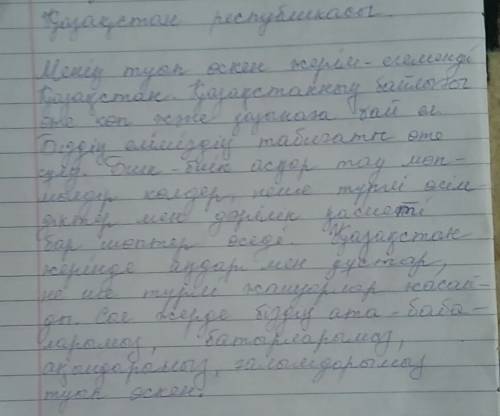 Қазақстан республикасы.
Менің туып өскен жерім - егеменді
Қазақстан. Қазақстанның байлығы
өте көп және қазынаға бай ел
Біздің еліміздің табиғаты өте
Биік - биік асқар тау мөп -
мөлдір көлдер, неше түрлі өсім -
діктер мен дәрілік қасиеті
бар шөптер өседі. Қазақстан
жерінде аңдар мен құстар,
не ше түрлі жануарлар жасай-
ды. Сол жерде біздің ата - баба-
ларымыз, батырларымыз,
ақындарымыз, ғалымдарымыз
туып өскен.